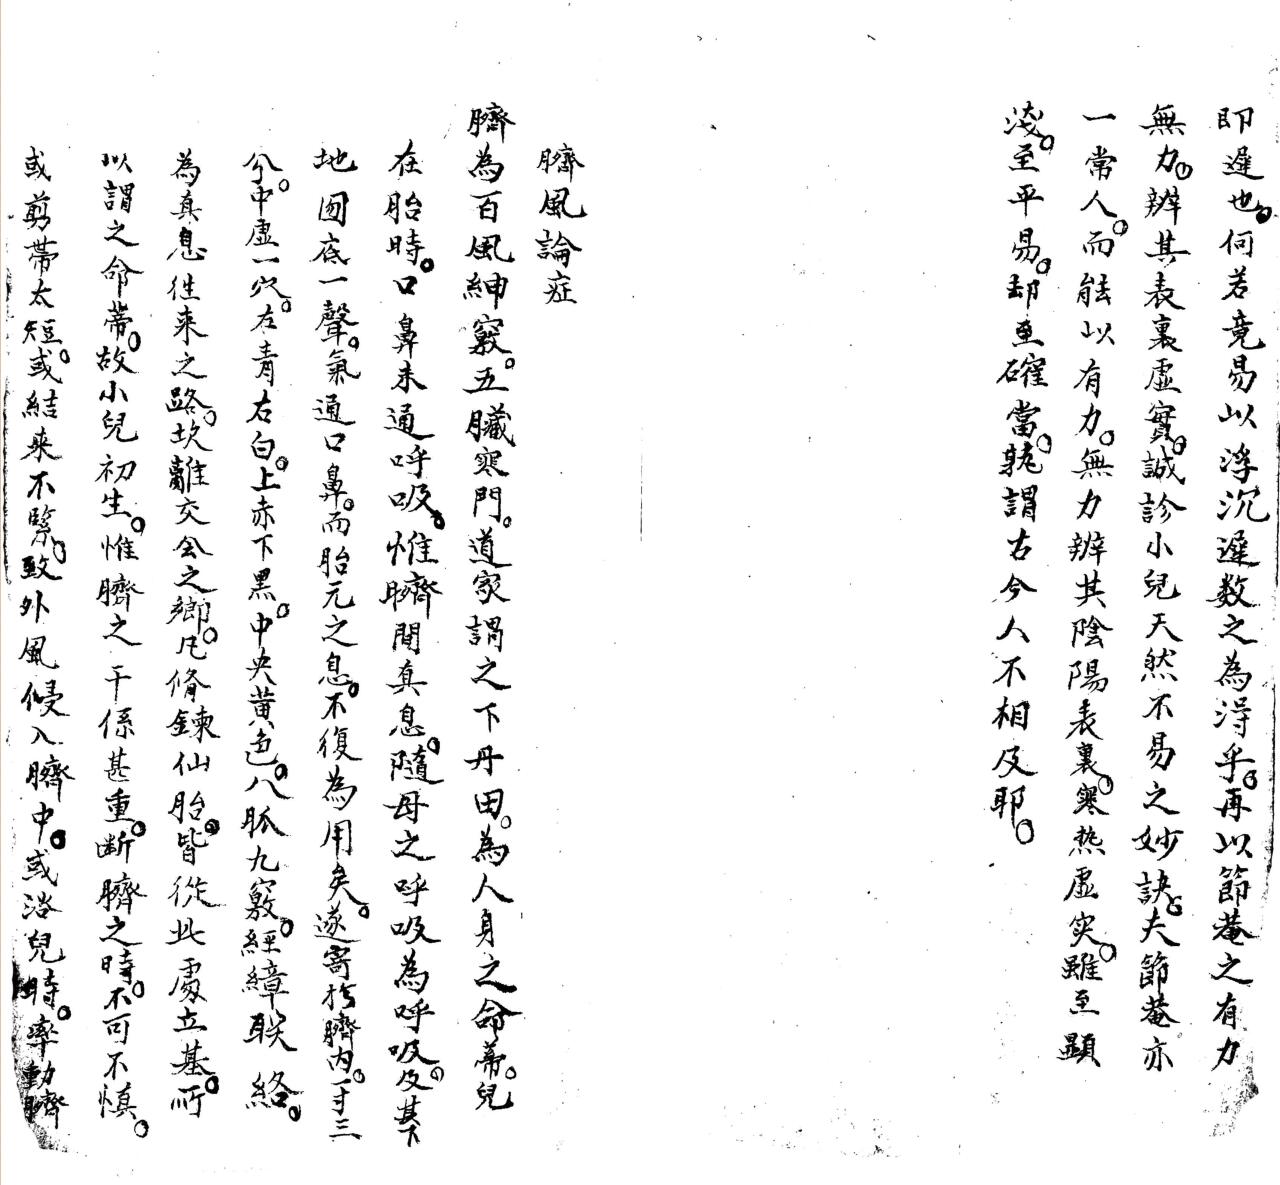 即遲也。何若竟易以浮沉遲数之為得乎。再以節菴之有力
無力。辨其表裏虛實。誠診小兒天然不易之妙訣。夫節菴亦
一常人。而能以有力。無力辨其陰陽表裏。寒热虛实。雖至顯
淺。至平易。却至確當。孰謂古今人不相及耶。
臍風論症
臍為百風紳竅。五臟寒門。道家謂之下丹田。為人身之命蒂。兒
在胎時。口鼻未通呼吸。惟臍間真息。隨母之呼吸為呼吸。及其下
地囫底一聲。氣通口鼻。而胎元之息。不復為用矣。遂寄於臍内一寸三
分。中虛一穴。左青右白。上赤下黑。中央黄色。八脈九竅。經絡联絡。
為真息徃来之路。坎離交会之鄉。凡脩鍊仙胎。皆從此處立基。所
以謂之命蒂。故小兒初生。惟臍之干係甚重。断臍之時。不可不慎。
或剪帶太短。或結束不緊。致外風侵入臍中。或浴兒時。牽動臍